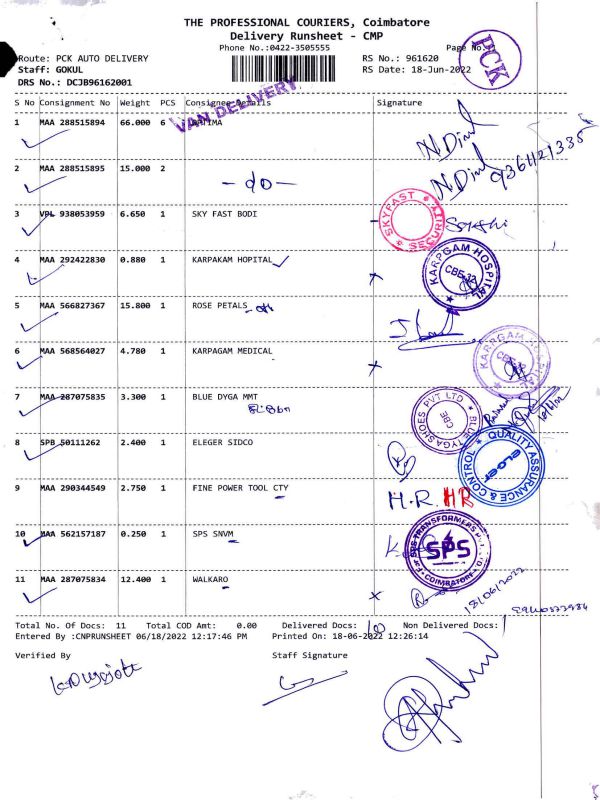 THE PROFESSIONAL COURIERS, Coimbatore
Delivery Runsheet - CMP
Phone No.:0422-3505555
Page No.:
PCK
Route: PCK AUTO DELIVERY
RS No.: 961620
Staff: GOKUL
RS Date: 18-Jun-2022
DRS No.: DCJB96162001
VAN DELIVERY
S No Consignment No Weight PCS Consignee Details Signature
1 MAA 288515894 66.000 6
2 MAA 288515895 15.000 2 -do-
3 VPL 938053959 6.650 1 SKY FAST BODI
SKYFAST SECURITY
4 MAA 292422830 0.880 1 KARPAKAM HOPITAL
KARPGAM HOSPITAL CBE-32
5 MAA 566827367 15.800 1 ROSE PETALS
6 MAA 568564027 4.780 1 KARPAGAM MEDICAL
KARPGAM HOSPITAL CBE-32
7 MAA 287075835 3.300 1 BLUE DYGA MMT
BLUE TYGA SHOES PVT LTD CBE
8 SPB 50111262 2.400 1 ELEGER SIDCO
QUALITY ASSURANCE & CONTROL elger
9 MAA 290344549 2.750 1 FINE POWER TOOL CTY H.R. HR
10 MAA 562157187 0.250 1 SPS SNVM
SPS TRANSFORMERS SPS COIMBATORE
11 MAA 287075834 12.400 1 WALKARO
18/06/2022
Total No. Of Docs: 11 Total COD Amt: 0.00 Delivered Docs: 10 Non Delivered Docs: 1
Entered By :CNPRUNSHEET 06/18/2022 12:17:46 PM Printed On: 18-06-2022 12:26:14
Verified By Staff Signature